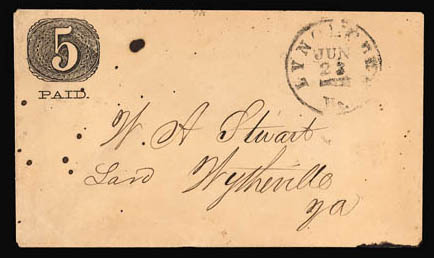 5
PAID.
LYNCHBURG
JUN
23
Va.
W. A Stuart
Wytheville
Va